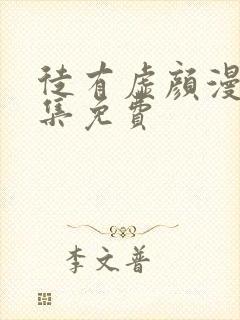 徒有虛顏漫
集免費
李文普